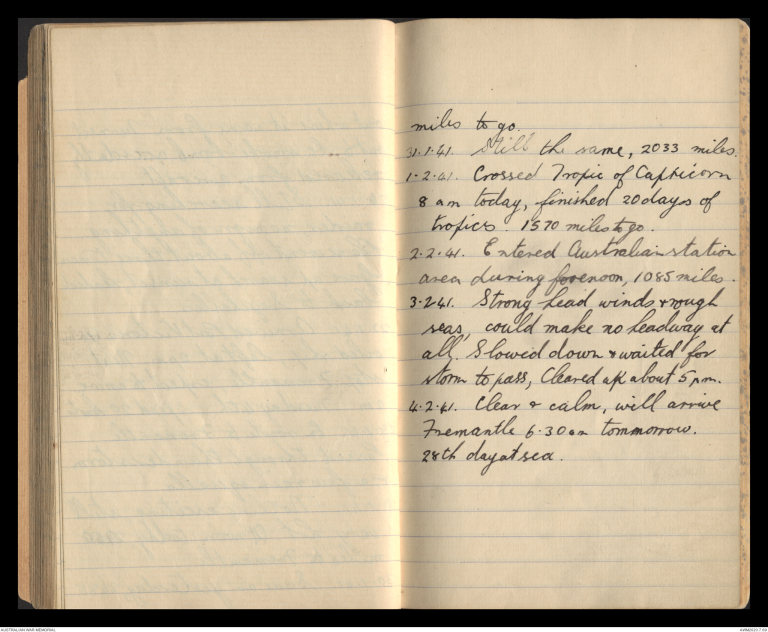 miles to go.
31.1.41. Still the same, 2033 miles.
1.2.41. Crossed Tropic of Capricorn
8 am today, finished 20 days of
tropics. 1570 miles to go.
2.2.41. Entered Australian station
area during forenoon, 1085 miles.
3.2.41. Strong head winds & rough
seas, could make no headway at
all. Slowed down & waited for
storm to pass, Cleared up about 5 pm.
4.2.41. Clear & calm, will arrive
Fremantle 6.30 am tommorrow.
28th day at sea.
AUSTRALIAN WAR MEMORIAL